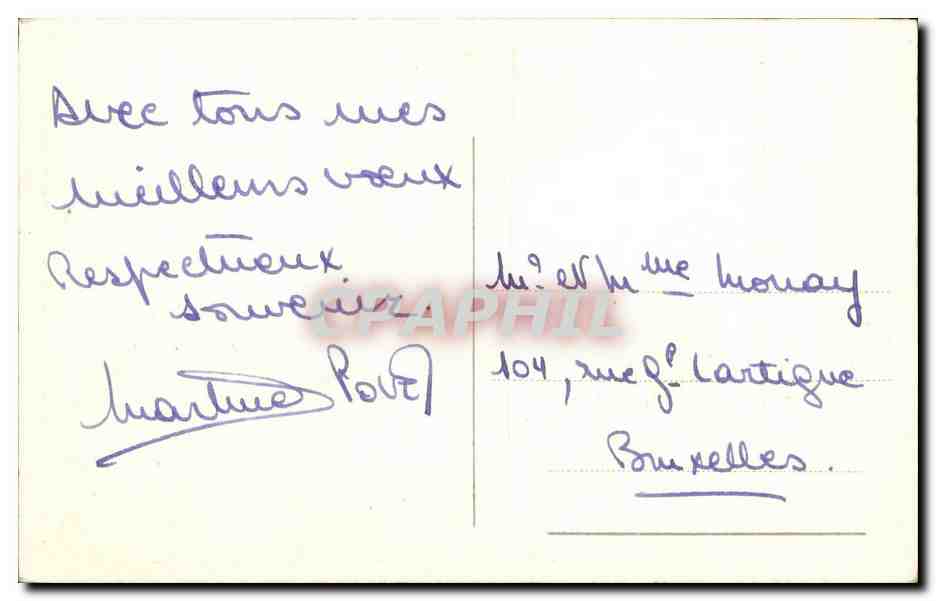 Avec tous mes
meilleurs vœux
Respectueux
souvenir.
Martine
Mr et Mme Monay
104, rue Gal Lartigue
Bruxelles.
CPAPHIL